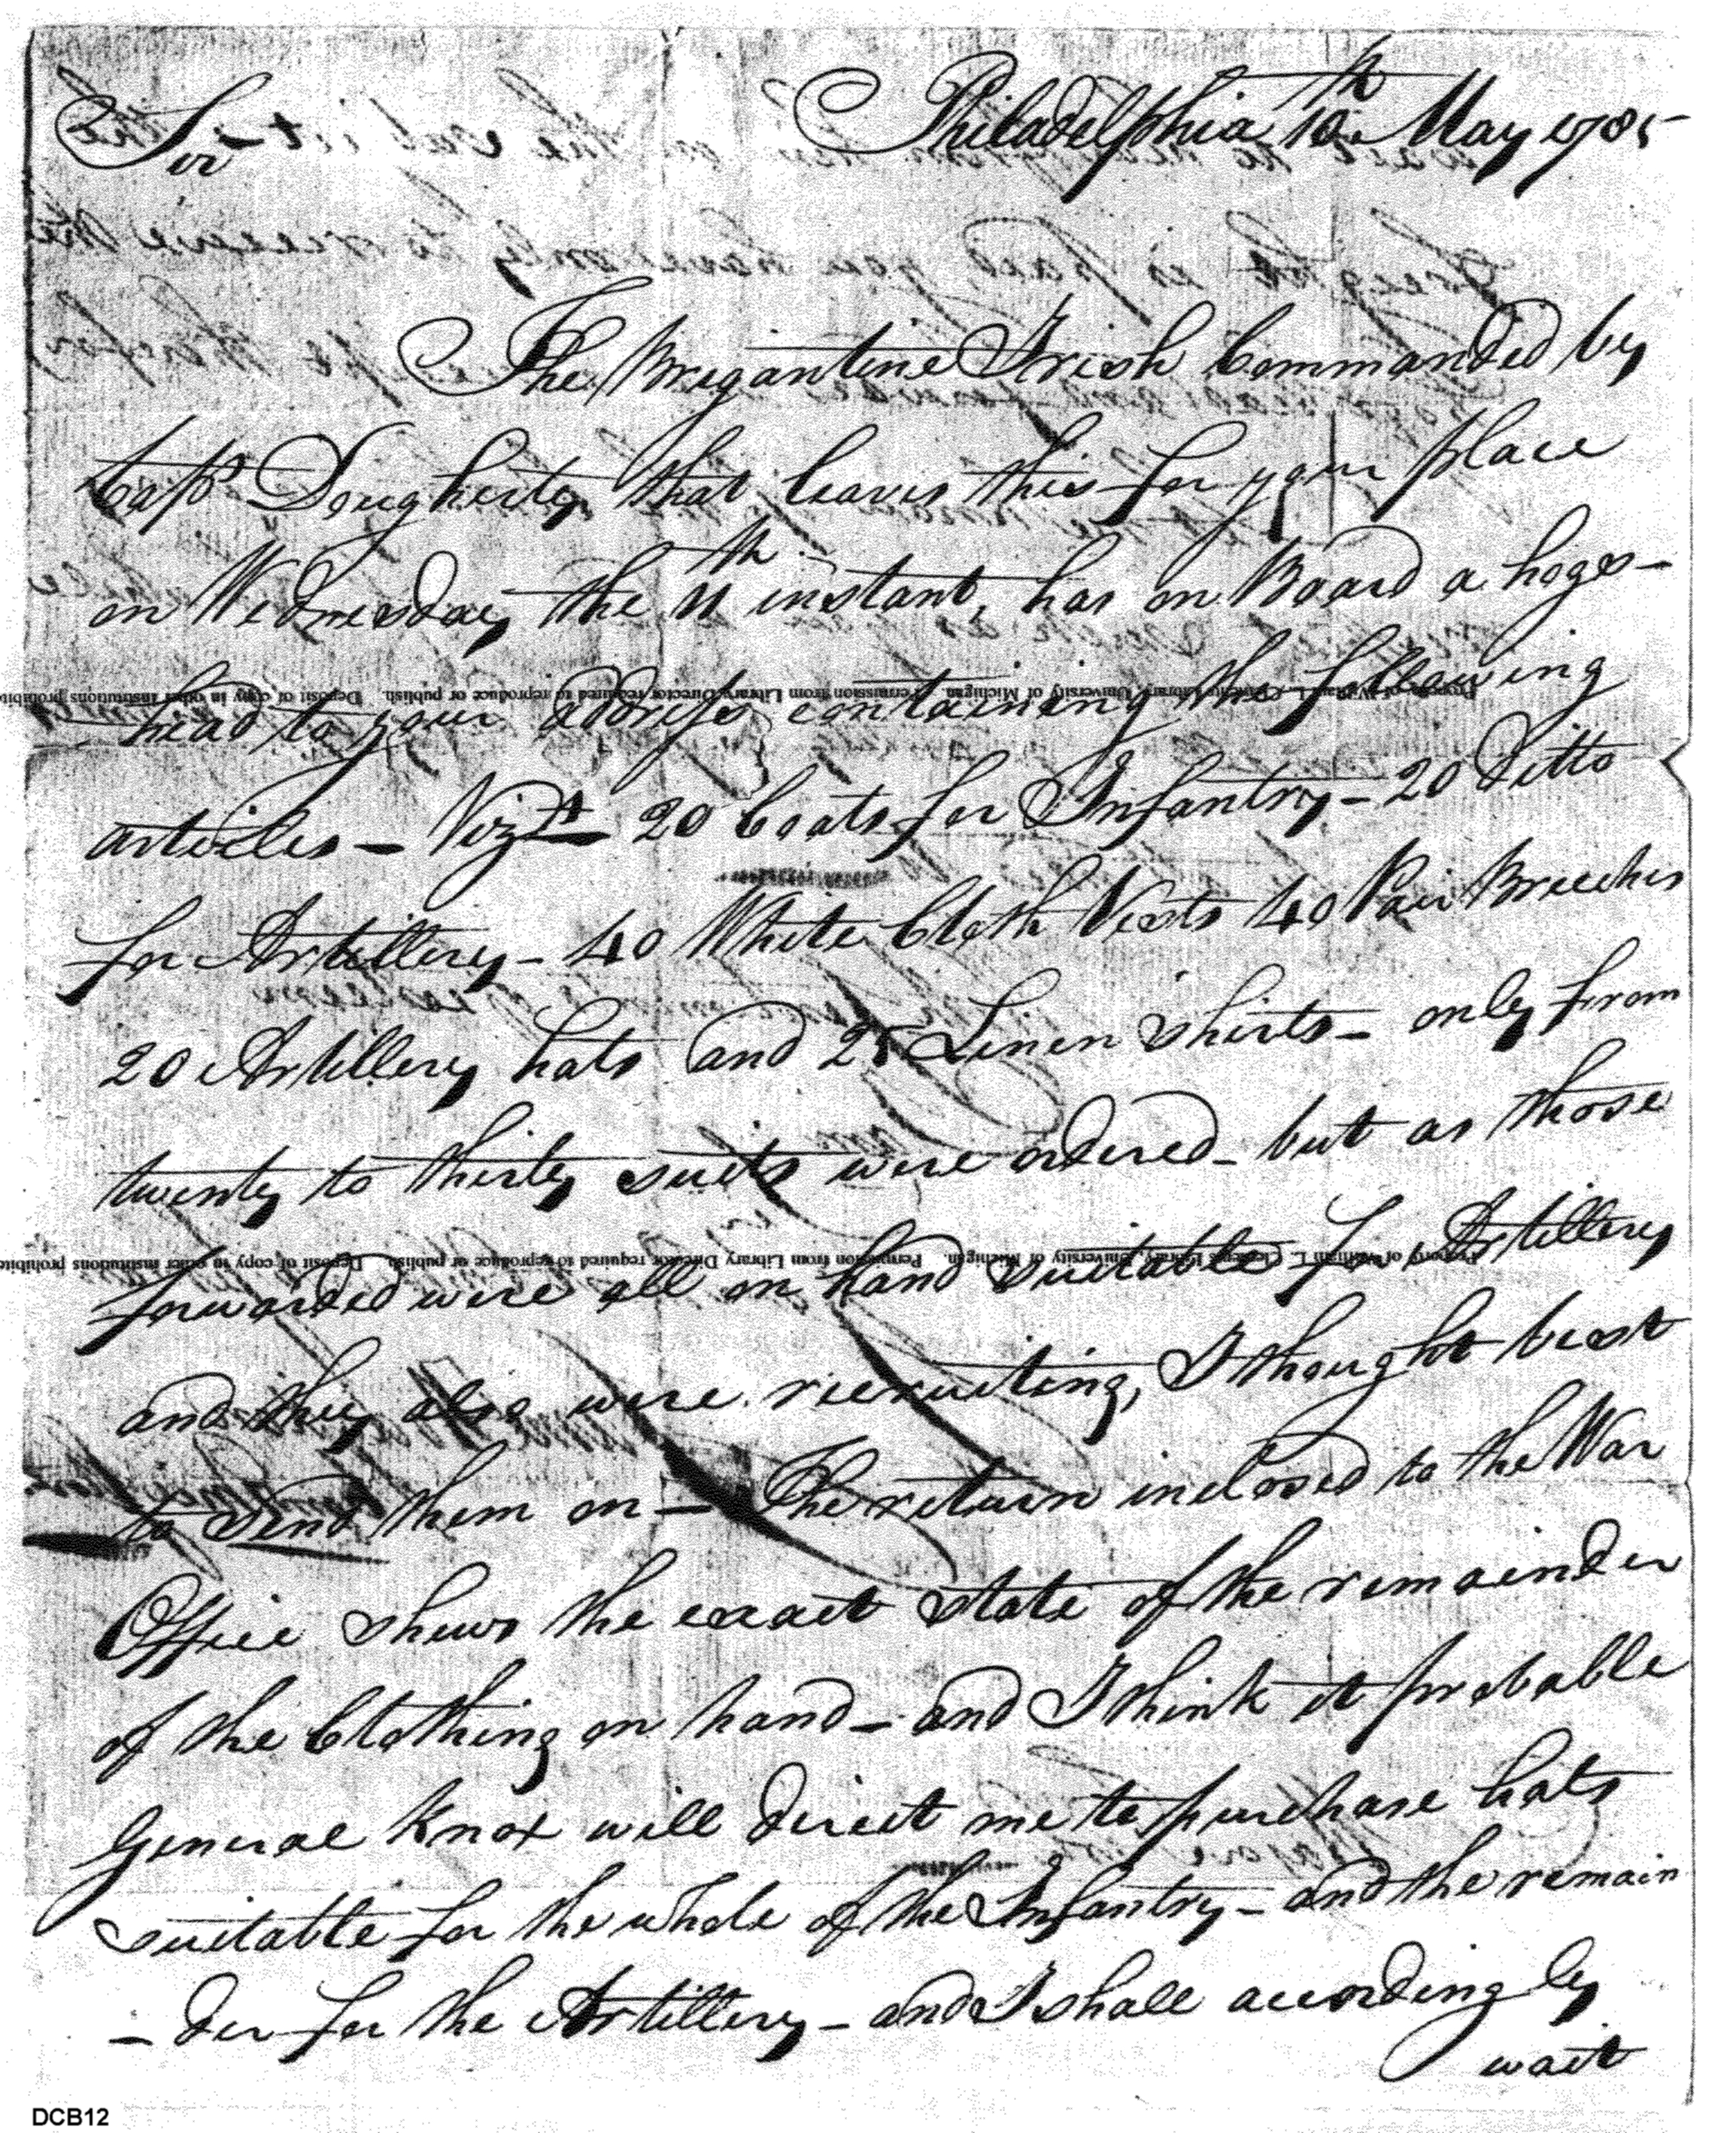 Philadelphia 10th May 1785
Sir
The Brigantine Irish Commanded by
Capt Dougherty that leaves this for your place
on Wednesday the 11th instant, has on Board a hogs-
head to your address containing the following
articles – Vizt 20 Coats for Infantry – 20 Ditto
for Artillery – 40 White Cloth Vests 40 Pair Breeches
20 Artillery hats and 25 Linen shirts – only from
twenty to thirty suits were ordered – but as those
forwarded were all on hand suitable for Artillery
and they also were recruiting, I thought best
to send them on – The return inclosed to the War
Office shews the exact state of the remainder
of the Clothing on hand – and I think it probable
General Knox will direct me to purchase hats
suitable for the whole of the Infantry – and the remain
– der for the Artillery – and I shall accordingly
wait
Property of William L. Clements Library, University of Michigan. Permission from Library Director required to reproduce or publish. Deposit of copy in other institutions prohibit
Property of William L. Clements Library, University of Michigan. Permission from Library Director required to reproduce or publish. Deposit of copy in other institutions prohibit
DCB12